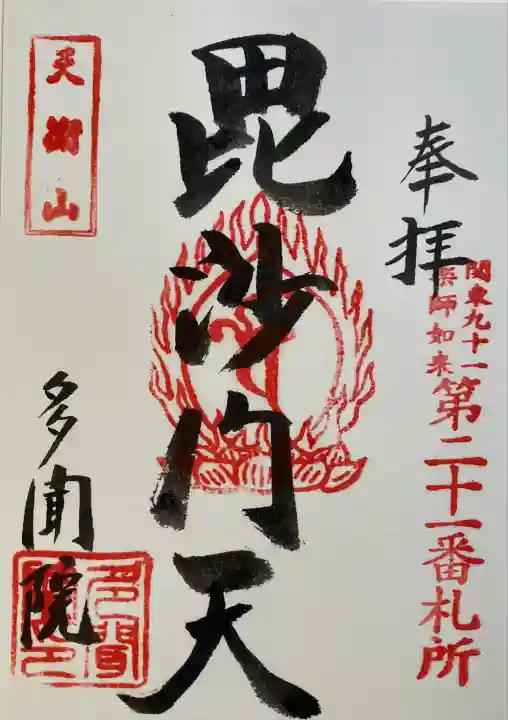 奉拝
関東九十一
薬師如来
第二十一番札所
毘沙門天
天衛山
多聞院
多聞
院印